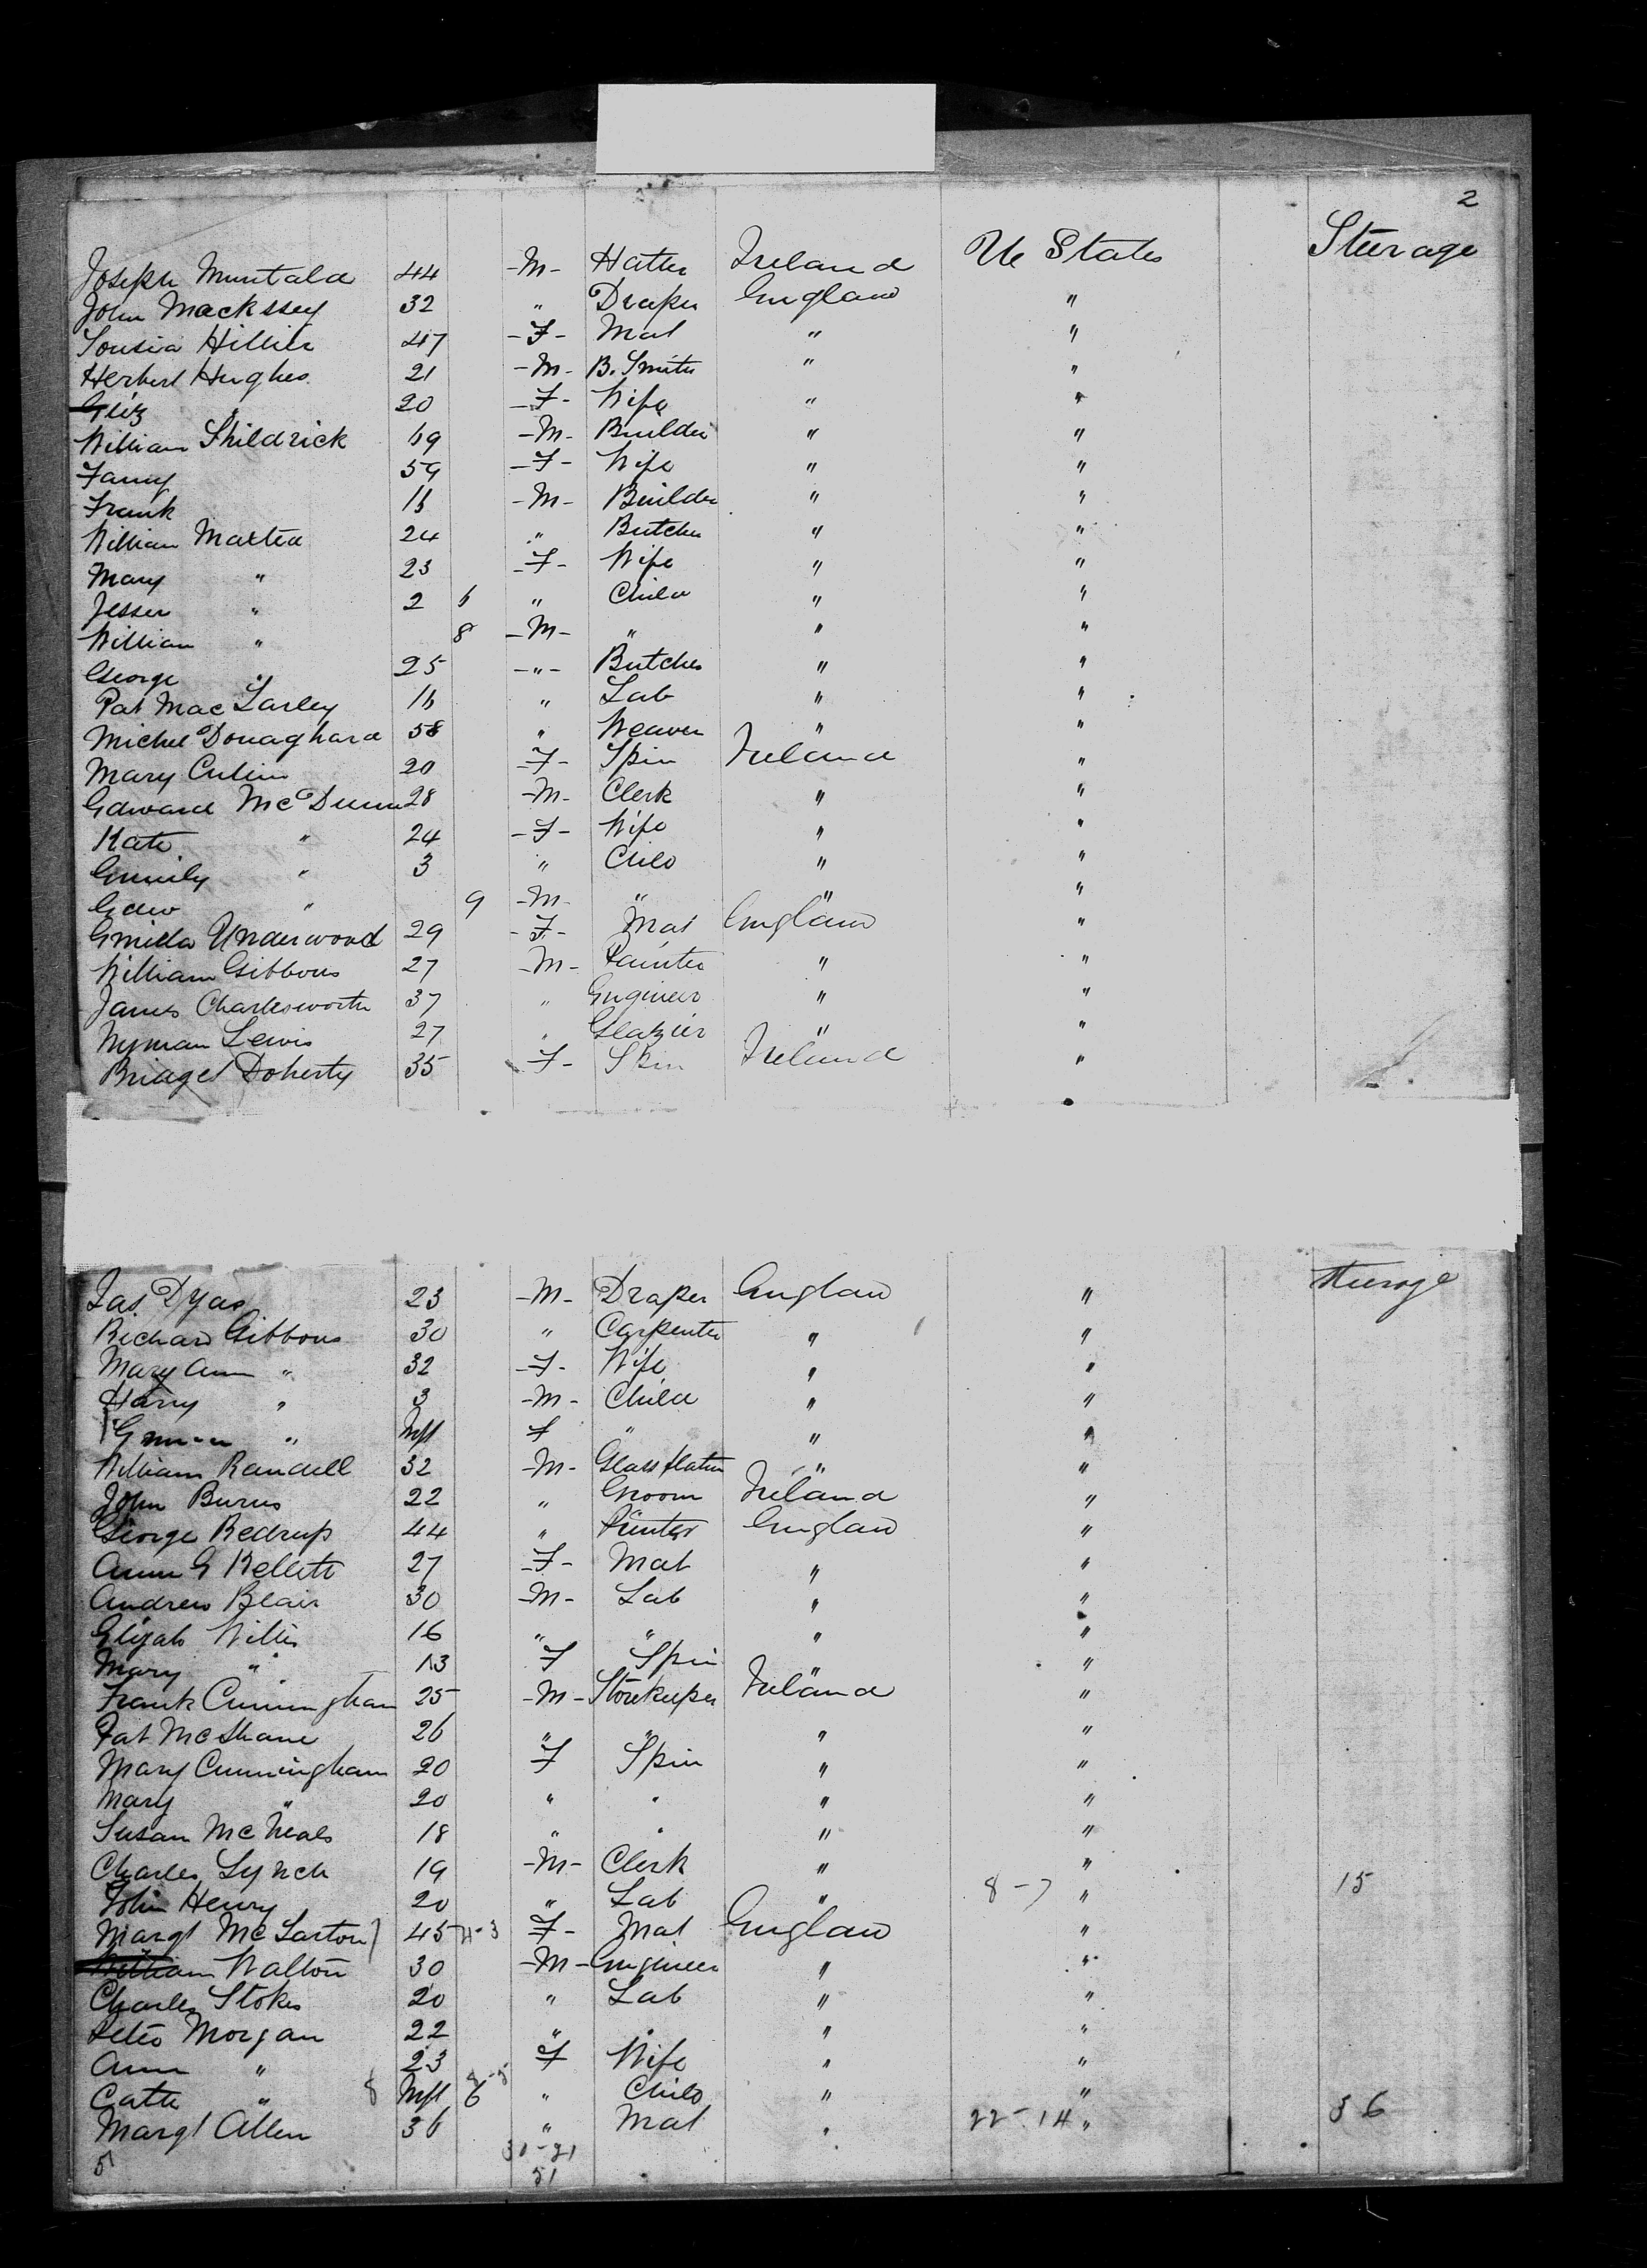 2
Joseph 44 -M- Hatter Ireland U States Steerage
John Mackssey 32 " Draper England "
Hillier 47 -F- Mat " "
Herbert Hughes 21 -M- B. Smith " "
Eliz " 20 -F- Wife " "
William Shildrick 69 -M- Builder " "
Fanny 59 -F- Wife " "
Frank 16 -M- Builder " "
William 24 " Butcher " "
Mary " 23 -F- Wife " "
" 2 6 " Child " "
William " 8 -M- " " "
George " 25 -"- Butcher " "
Pat Mac 16 " Lab " "
Michel 58 " Weaver " "
Mary 20 -F- Spin Ireland "
Edward 28 -M- Clerk " "
Kate " 24 -F- Wife " "
" 3 " Child " "
Edw " 9 -M- " " "
Underwood 29 -F- Mat England "
William Gibbons 27 -M- Painter " "
James Charlesworth 37 " Engineer " "
Hyman Lewis 27 " Glazier " "
Bridget Doherty 35 -F- Spin Ireland "
Jas Dyas 23 -M- Draper England " Steerage
Richard Gibbons 30 " Carpenter " "
Mary Ann " 32 -F- Wife " "
Harry " 3 -M- Child " "
" Inft F " " "
William Randell 32 -M- Glass " "
John Burns 22 " Groom Ireland "
George Redrup 44 " Printer England "
Ann E Kellett 27 -F- Mat " "
Andrew Blair 30 -M- Lab " "
Elijah Willis 16 " " " "
Mary " 13 F Spin " "
Frank Cunningham 25 -M- Storekeeper Ireland "
Pat McShane 26 " " " "
Mary Cunningham 20 F Spin " "
Mary " 20 " " " "
Susan 18 " " " "
Charles Lynch 19 -M- Clerk " "
John Henry 20 " Lab " 8-7 " 15
Margt 45 4-3 F- Mat England "
William Walton 30 -M- Engineer " "
Charles Stokes 20 " Lab " "
Morgan 22 " " " "
Ann " 23 F Wife " "
Cath " 8 Inft 6 " Child " "
Margt Allen 36 " Mat " 22-14 " 36
51 30-21
51